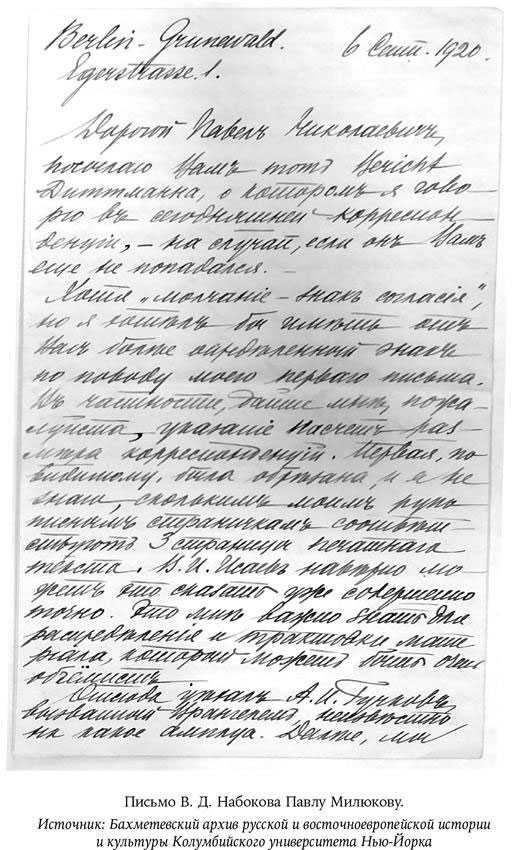 Berlin-Grunewald. 6 Сент. 1920.
Egerstrasse 1.
Дорогой Павелъ Николаевичъ,
посылаю Вамъ тотъ Bericht
Диттманна, о которомъ я гово-
рю въ сегодняшней корреспон-
денціи, – на случай, если онъ Вамъ
еще не попадался. –
Хотя „молчаніе – знакъ согласія",
но я хотѣлъ бы имѣть отъ
Васъ болѣе опредѣленный знакъ
по поводу моего перваго письма.
Въ частности, дайте мнѣ, пожа-
луйста, указаніе насчетъ раз-
мѣра корреспонденцій. Первая, по
видимому, была обрѣзана, и я не
знаю, сколькимъ моимъ руко-
писнымъ страничкамъ соотвѣт-
ствуютъ 3 страницы печатнаго
текста. В. И. Исаевъ навѣрно мо-
жетъ это сказать уже совершенно
точно. Это мнѣ важно знать для
распредѣленія и трактовки мате-
ріала, который можетъ быть очень
объёмистъ
Отсюда уѣхалъ А. И. Гучковъ,
вызванный Врангелемъ неизвѣстно
на какое амплуа. Далѣе, мы
Письмо В. Д. Набокова Павлу Милюкову.
Источник: Бахметевский архив русской и восточноевропейской истории
и культуры Колумбийского университета Нью-Йорка